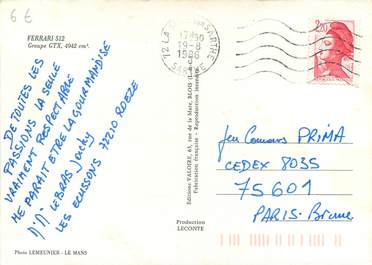 6€
FERRARI 512
Groupe GTX, 4942 cm³.
72 LA SARTHE
17H30
19-8
1986
SARTHE
2,20
DE TOUTES LES
PASSIONS LA SEULE
VRAIMENT RESPECTABLE
ME PARAIT ETRE LA GOURMANDISE
LEBRAS Jacky
LES ECUSSONS 72210 ROEZE
Editions VALOIRE, 65, rue de la Mare, BLOIS (L.-&-C.)
Fabrication française - Reproduction interdite
Jeu Concours PRIMA
CEDEX 8035
75601
PARIS-Brune
Production
LECONTE
Photo LEMEUNIER - LE MANS